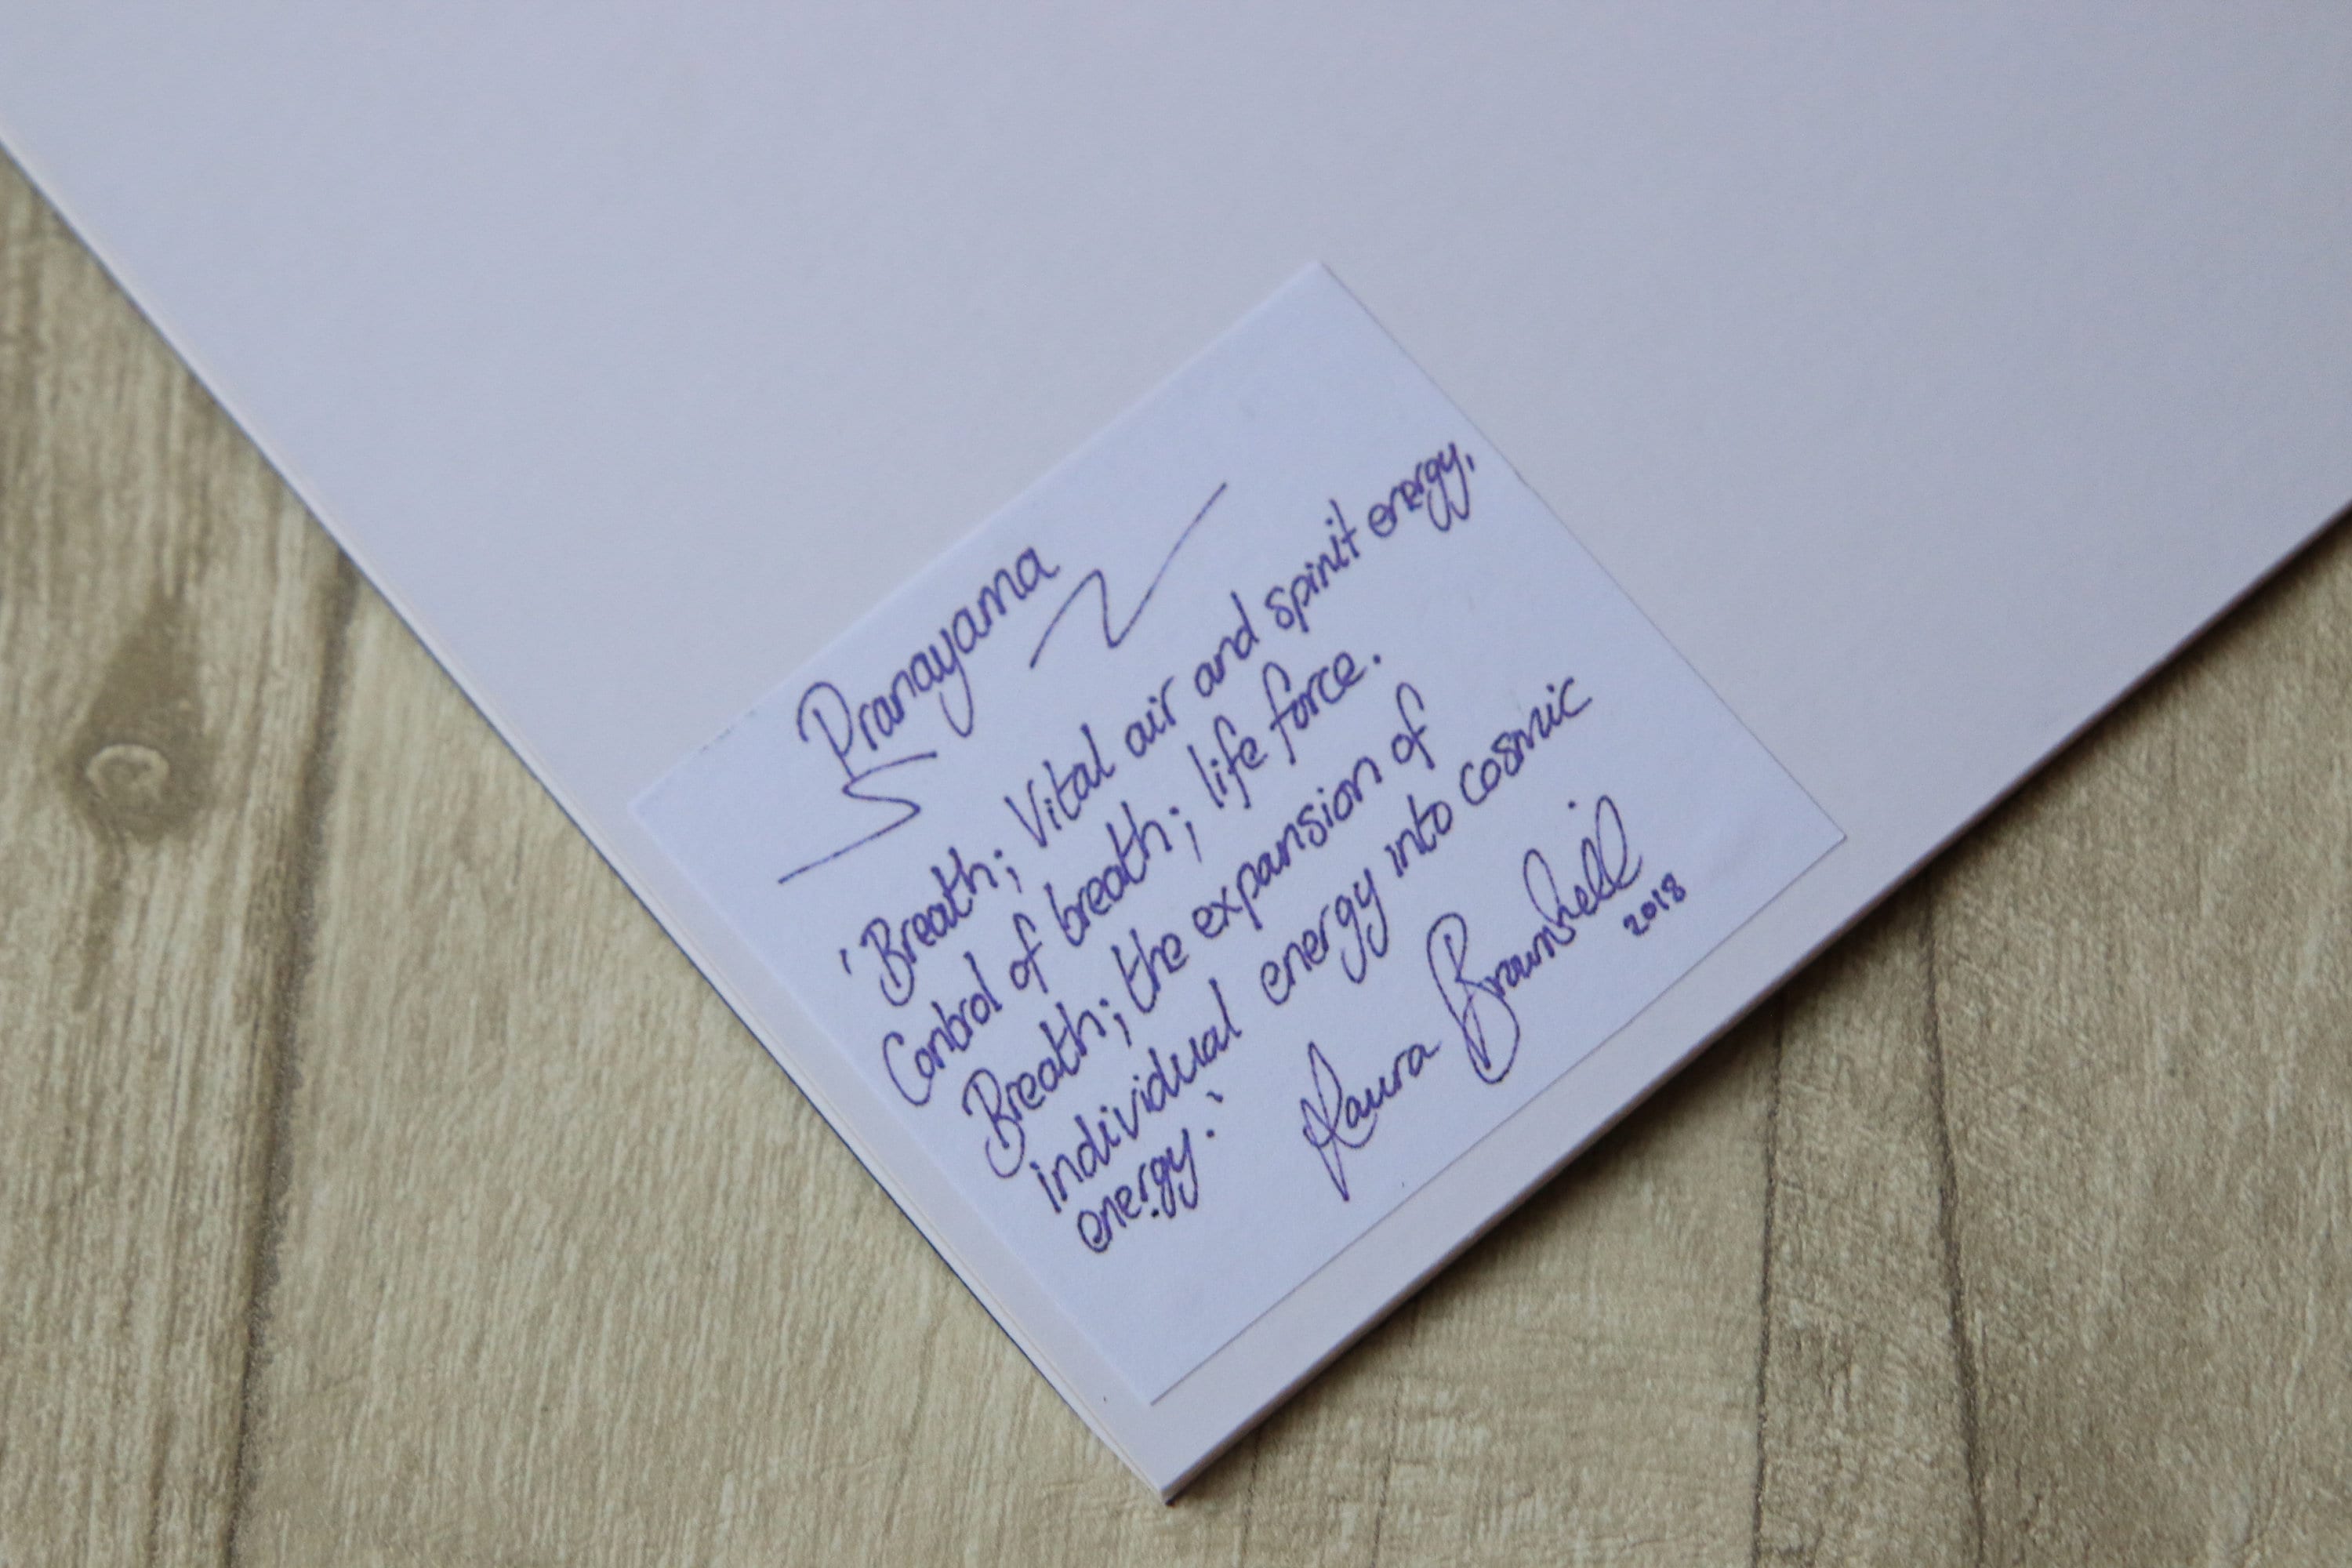 Pranayama
'Breath; Vital air and spirit energy,
Control of breath; life force.
Breath; the expansion of
individual energy into cosmic
energy.'
Laura Brownhill
2018